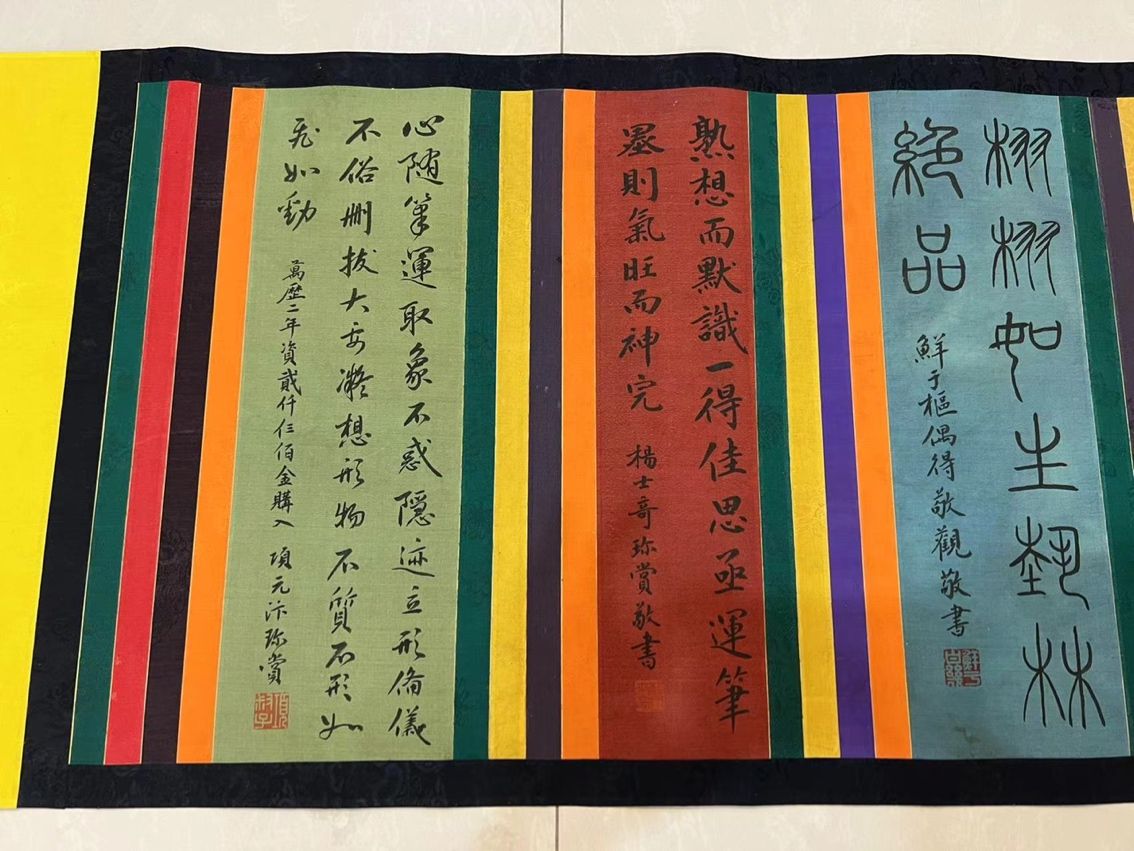 栩栩如生藝林
絶品
鮮于樞偶得敬觀敬書
熟想而默識一得佳思亟運筆
墨則氣旺而神完
楊士奇珎賞敬書
心随筆運取象不惑隱迹立形僃儀
不俗刪拔大要凝想形物不質不形如
飛如動
萬歷二年資貳仟仨佰金購入
項元汴珎賞